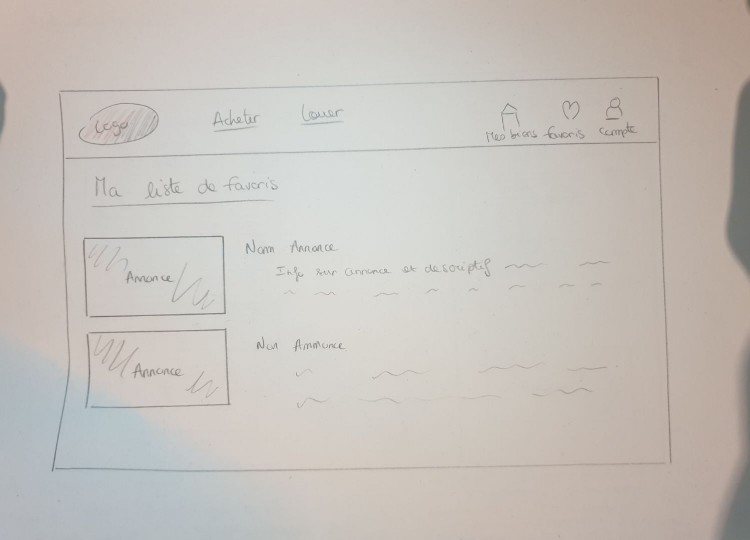 Logo
Acheter Louer
Mes biens favoris compte
Ma liste de favoris
Annonce
Nom Annonce
Info sur annonce et descriptif
Annonce
Nom Annonce